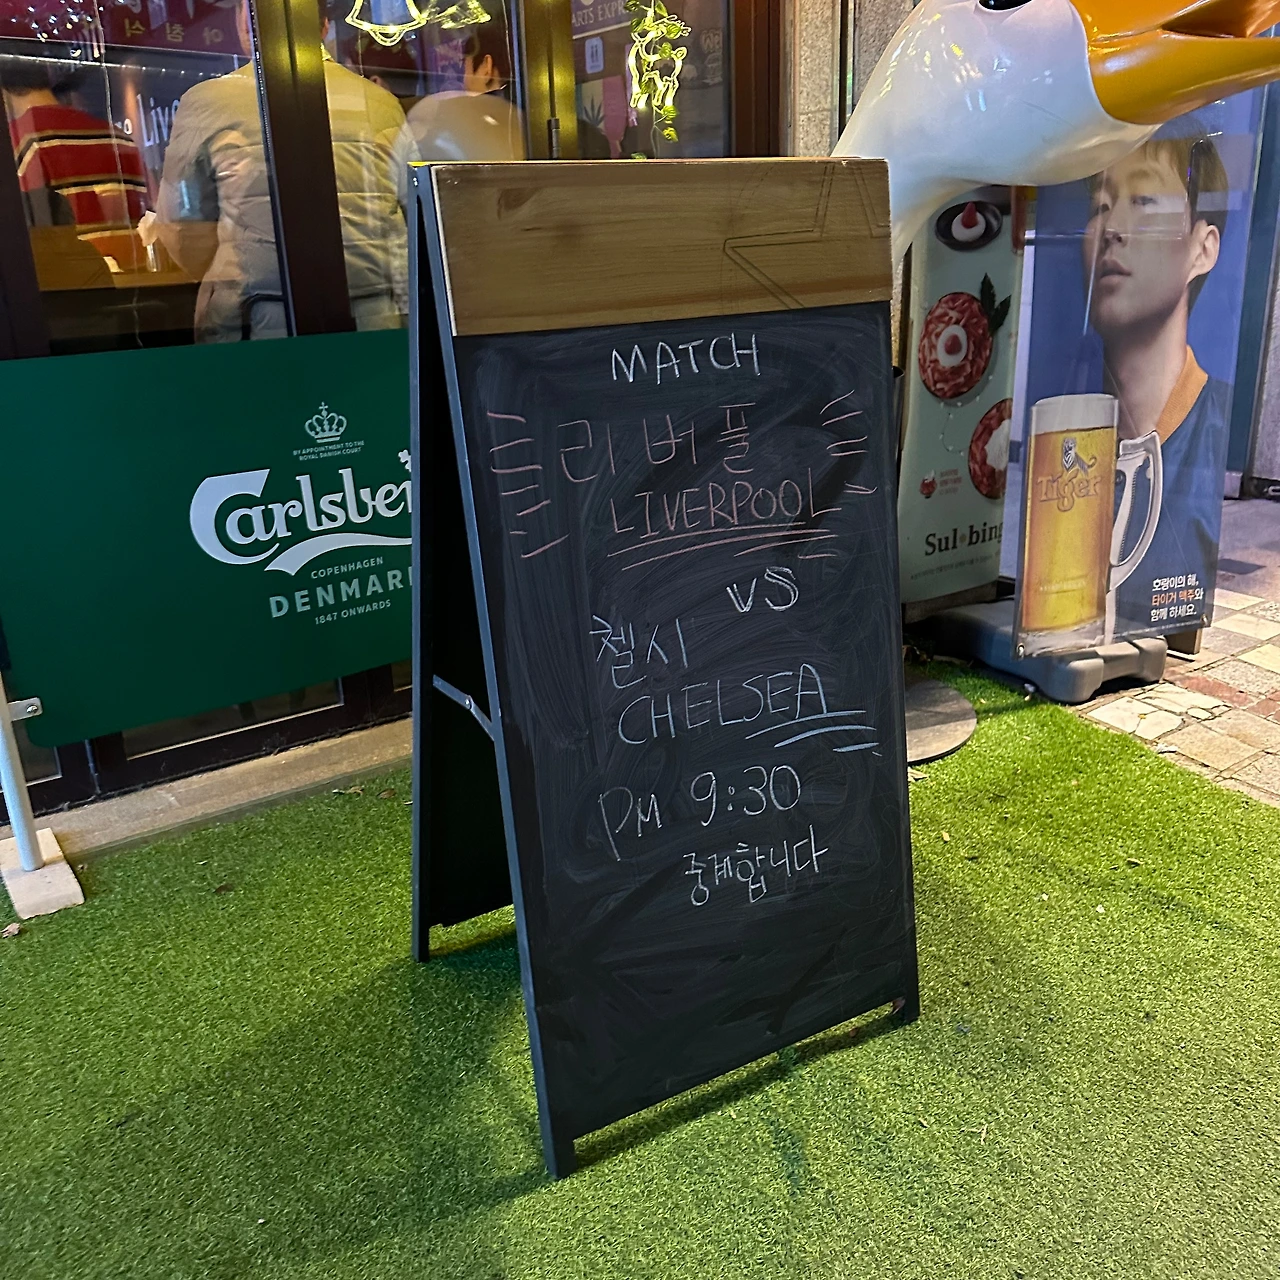 MATCH
리버풀
LIVERPOOL
VS
첼시
CHELSEA
PM 9:30
중계합니다
BY APPOINTMENT TO THE
ROYAL DANISH COURT
Carlsber
COPENHAGEN
DENMARK
1847 ONWARDS
Live
ARTS EXPR
Sul bing
Tiger
호랑이의 해,
타이거 맥주와
함께 하세요.